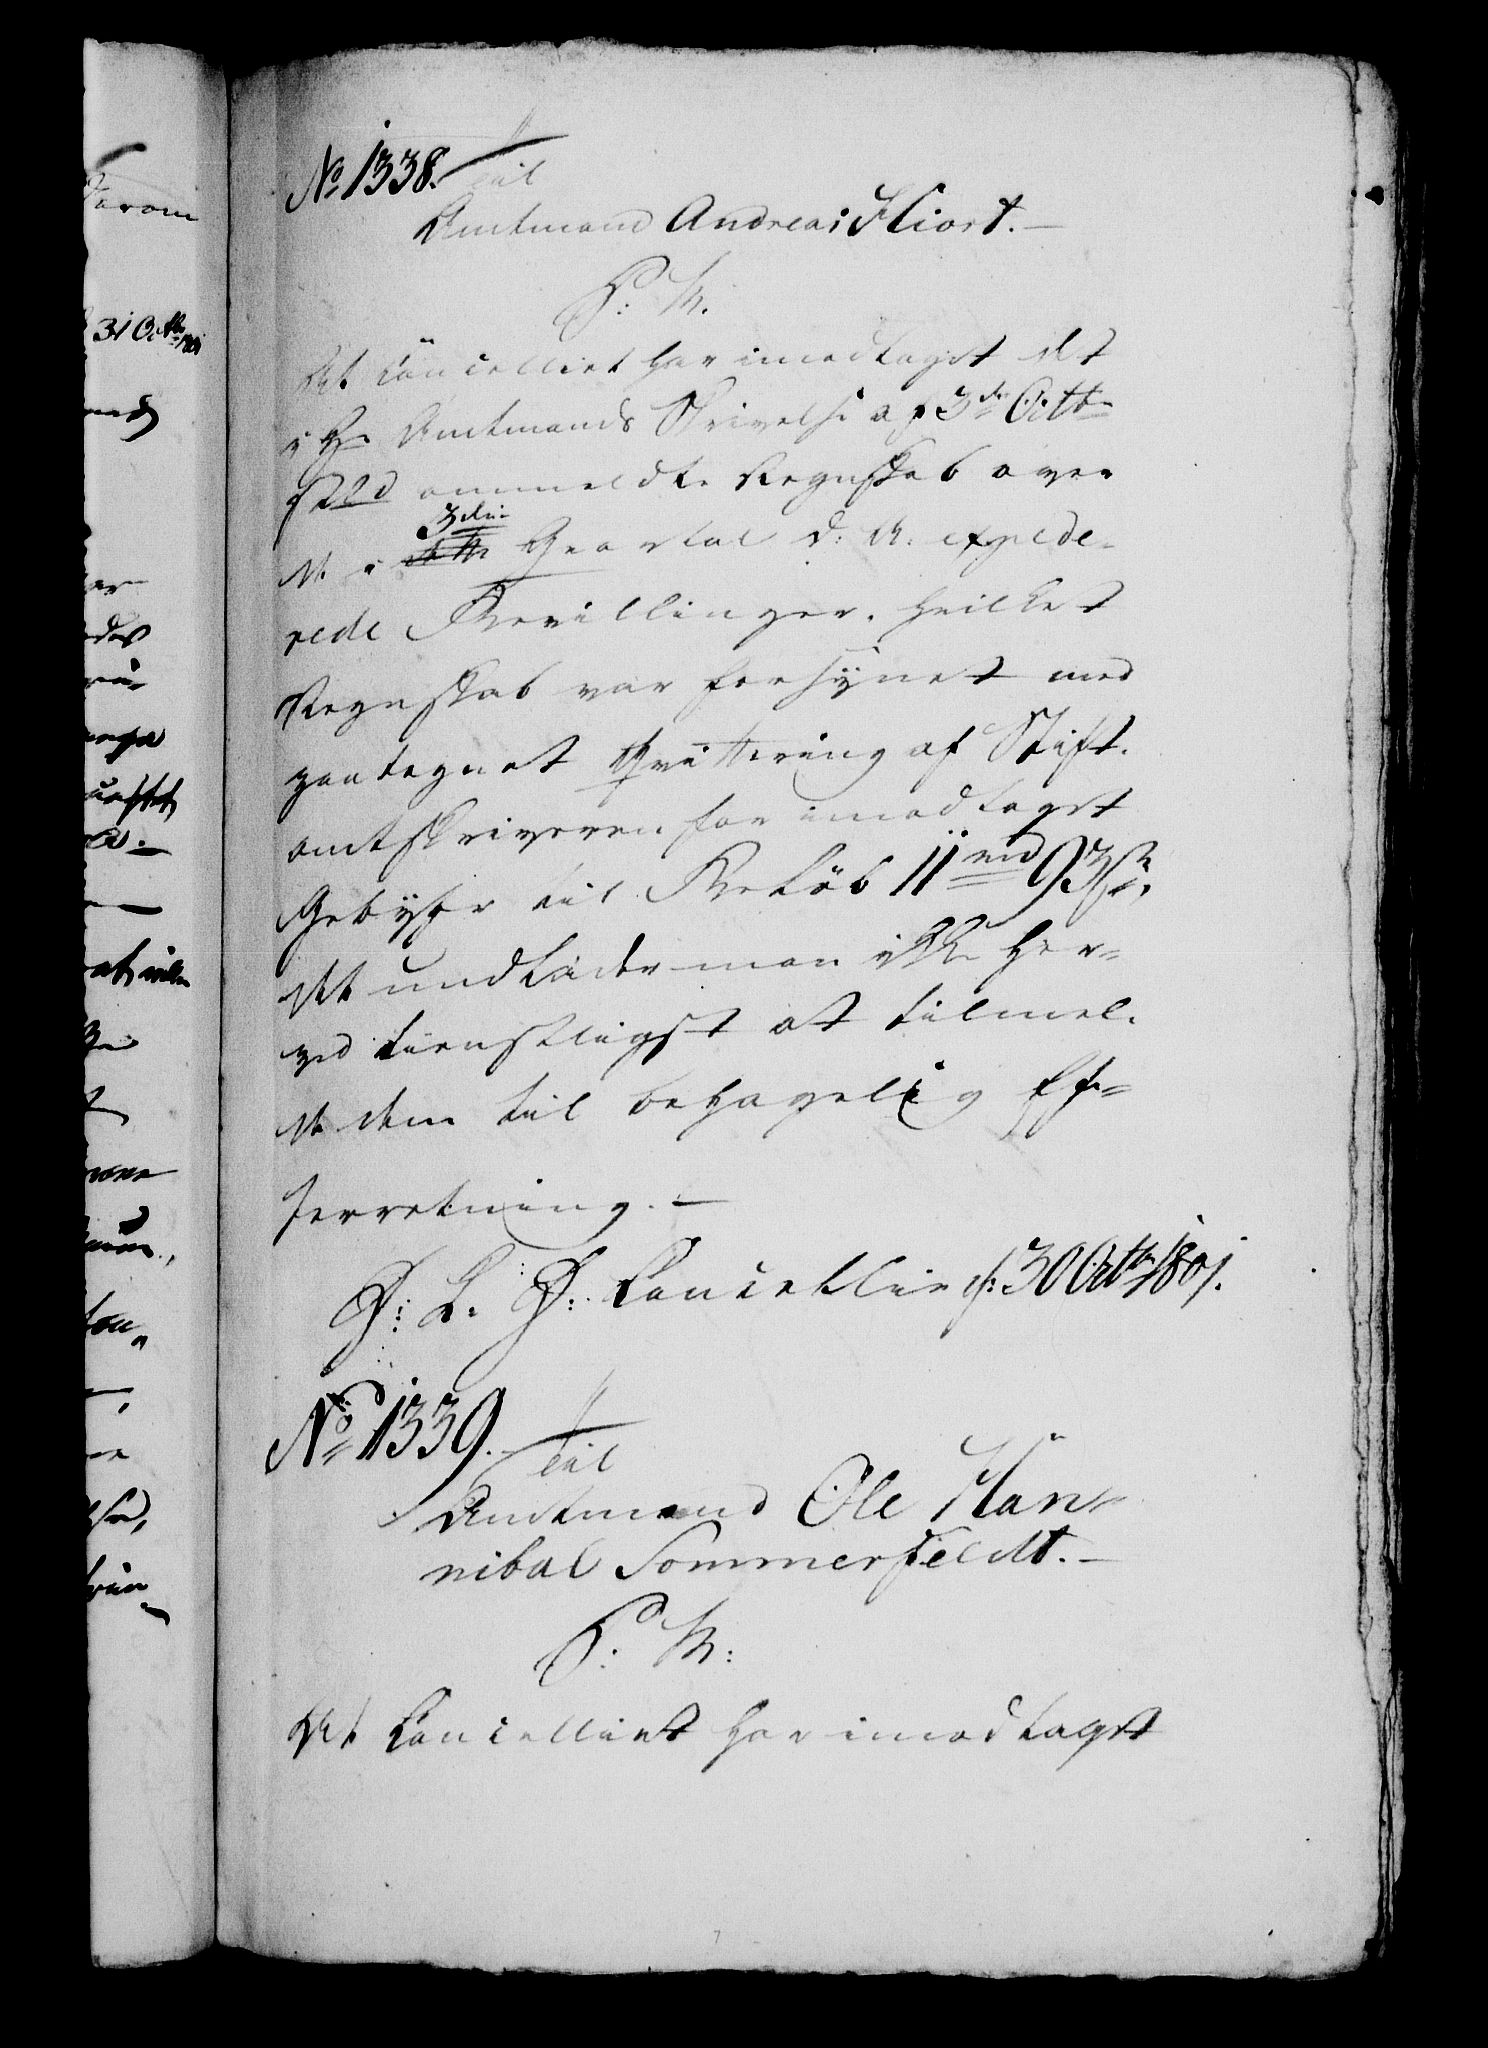 No 1338.
Til
Amtmand Andreas Hiort. —
P: M.
Det Cancelliet har imodtaget det
i Hr Amtmands Skrivelse af 3de Octbr
ommeldte Regnskab over
de i 3die Qvartal d: A: expede-
rede Bevillinger, hvilket
Regnskab var forsynet med
paategnet Qvittering af Stift-
amtskriveren for imodtaget
Gebyhr til Beløb 11 rd 93 s.,
det undlader man ikke her-
ved tienstligst at tilmel-
de dem til behagelig Ef-
terretning. —
D: L. D: Cancellie d: 30 Octbr 1801.
No 1339.
Til
Amtmand Ole Han-
nibal Sommerfeldt. —
P: M:
Det Cancelliet har imodtaget